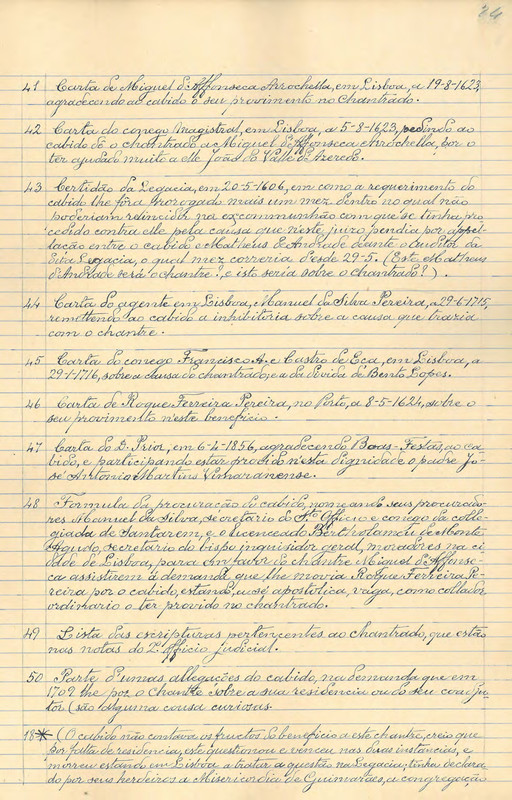 24
41 Carta de Miguel d'Affonseca Arrochella, em Lisboa, a 19-8-1623,
agradecendo ao cabido o seu provimento no chantrado.
42 Carta do conego Magistral, em Lisboa, a 5-8-1623, pedindo ao
cabido dê o chantrado a Miguel d'Affonseca Arrochella, por o
ter ajudado muito a elle João do Valle de Azeredo.
43 Certidão da Legacia, em 20-5-1606, em como a requerimento do
cabido lhe fôra prorogado mais um mez, dentro no qual não
poderiam relincidir na excommunhão com que se tinha pro
cedido contra elle pela causa que neste juizo pendia por appel
lação entre o cabido e Matheus d'Andrade deante o auditor da
dita Legacia, o qual mez correria desde 29-5. (Este Matheus
d'Andrade será o chantre?, e isto seria sobre o chantrado?).
44 Carta do agente em Lisboa, Manuel da Silva Pereira, a 29-6-1715,
remettendo ao cabido a inhibitoria sobre a causa que trazia
com o chantre.
45 Carta do conego Francisco A. e Castro de Eça, em Lisboa, a
29-1-1716, sobre a causa do chantrado, e a da divida de Bento Lopes.
46 Carta de Roque Ferreira Pereira, no Porto, a 8-5-1624, sobre o
seu provimento n'este beneficio.
47 Carta do D. Prior, em 6-4-1856, agradecendo Boas-Festas, ao ca-
bido, e participando estar provido n'esta dignidade o padre Jo-
sé Antonio Martins Vimaranense.
48 Formula da procuração do cabido, nomeando seus procurado-
res Manuel da Silva, secretario do Sto Officio e conego da colle-
giada de Santarem, e o licenceado Bertholameu de Monte
Agudo, secretario do bispo inquisidor geral, moradores na ci-
dade de Lisboa, para em favor do chantre Miguel d'Affonse-
ca assistirem á demanda que lhe movia Roque Ferreira Pe-
reira por o cabido, estando a sé apostolica, vaga, como collador
ordinario o ter provido no chantrado.
49 Lista das escripturas pertencentes ao chantrado, que estão
nas notas do 2.º officio judicial.
50 Parte d'umas allegações do cabido, na demanda que em
1709 lhe poz o chantre sobre a sua residencia ou do seu coadju-
tor (são alguma cousa curiosas.
18* (O cabido não contava os fructos do beneficio a este chantre, creio que
por falta de residencia, este questionou e venceu nas duas instancias, e
morreu estando em Lisboa a tratar a questão na Legacia; tinha declara
do por seus herdeiros a Misericordia de Guimarães, a congregação